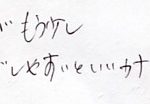 もう少し
しやすいといいカナ